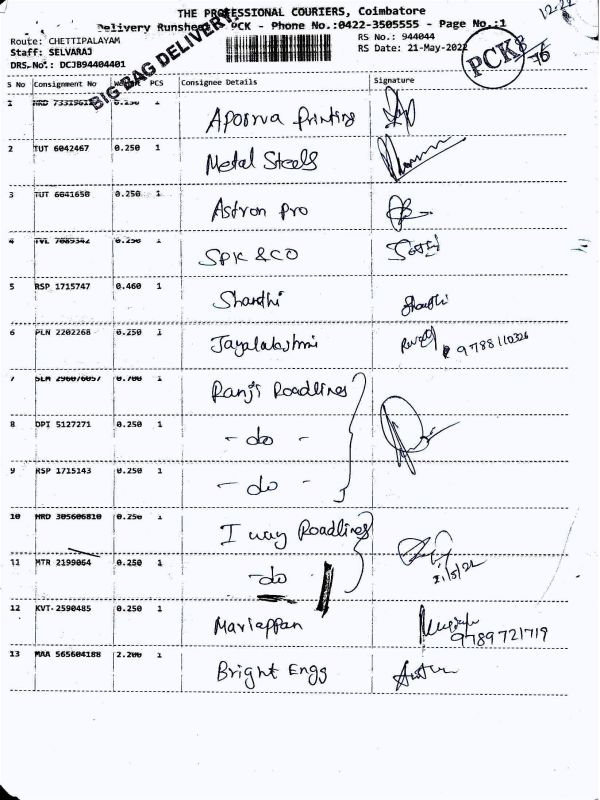 THE PROFESSIONAL COURIERS, Coimbatore
Delivery Runsheet PCK - Phone No.:0422-3505555 - Page No.:1
Route: CHETTIPALAYAM RS No.: 944044
Staff: SELVARAJ RS Date: 21-May-2022
DRS No.: DCJB94404401
BIG BAG DELIVERY!
PCK
S No Consignment No Weight PCS Consignee Details Signature
1 HRD 0.250 1 Apoorva Printing
2 TUT 6042467 0.250 1 Metal Steels
3 TUT 6041650 0.250 1 Astron Pro
4 TVL 7089342 0.250 1 SPK & CO
5 RSP 1715747 0.460 1 Shanthi Shanthi
6 PLN 2202268 0.250 1 Jayalakshmi 9788110326
7 SLM 296076057 0.700 1 Ranji Roadlines
8 OPI 5127271 0.250 1 - do -
9 RSP 1715143 0.250 1 - do -
10 HRD 305606810 0.250 1 I way Roadlines
11 MTR 2199064 0.250 1 - do - 21/5/22
12 KVT 2590485 0.250 1 Mariappan 9789721719
13 MAA 565604188 2.200 1 Bright Engg